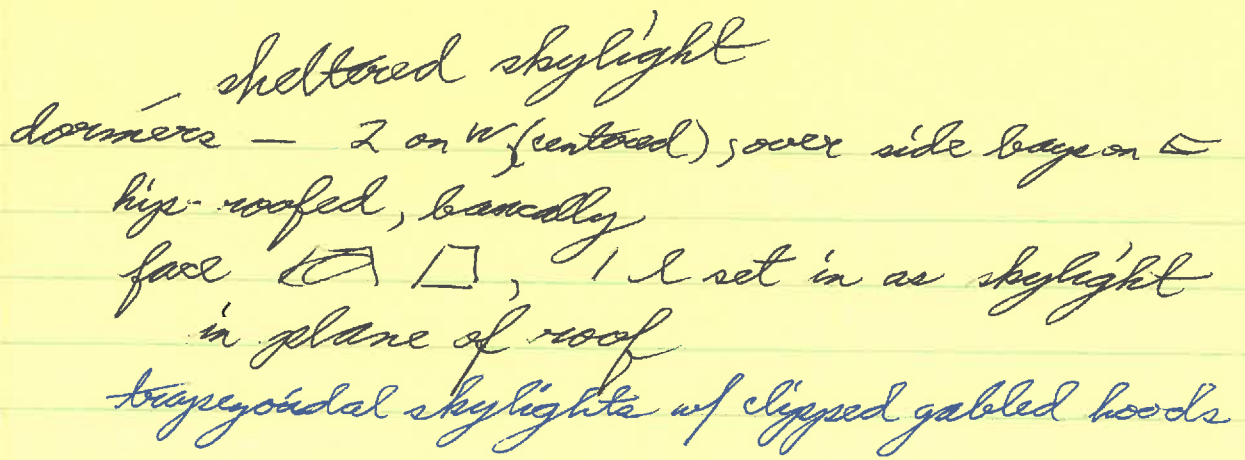 sheltered skylight
dormers — 2 on W (centered), over side bays on E
hip-roofed, basically
face , 1 l set in as skylight
in plane of roof
trapezoidal skylights w/ clipped gabled hoods